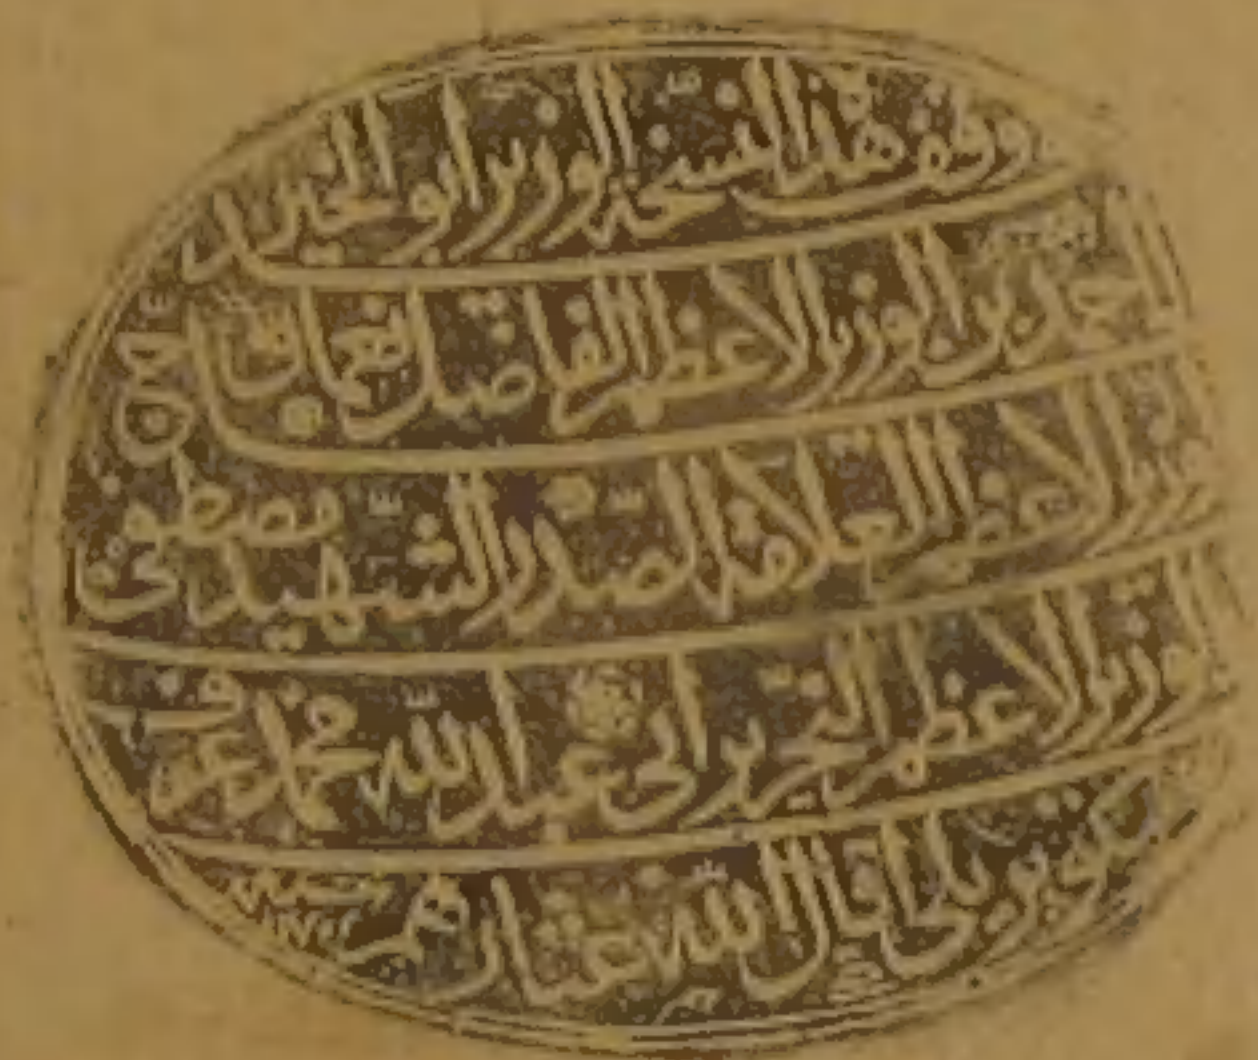 وقف هذا النسخة الوزير ابو الخير
احمد بن الوزير الاعظم الفاضل نعمان بن
الوزير الاعظم العلامة الصدر الشهيد مصطفى بن
الوزير الاعظم النحرير ابى عبد الله محمد عرف
بكوپريلى اقال الله عثارهم